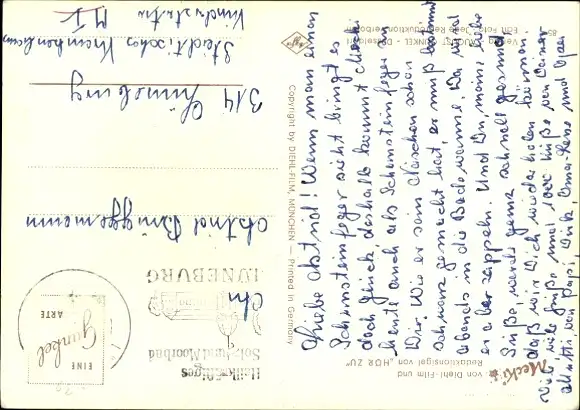 Liebe Astrid! Wenn man einen
Schornsteinfeger sieht bringt es
doch Glück, deshalb kommt Mecki
heute auch als Schornsteinfeger zu
Dir. Wie er sein Näschen schon
schwarz gemacht hat, er muß bestimmt
abends in die Badewanne. Da wird
er aber zappeln. Und Du, meine liebe
Süße, werde ganz schnell gesund
daß wir Dich wieder holen können.
Viele, viele Grüße und 1000 Küsse von Deiner
Mutti, von Papi, Dirk, Oma-Rene und Opa
Astrid Brüggemann
314 Lüneburg
Städtisches Krankenhaus
Kinderstation
M I
LÜNEBURG
Heilkräftiges
Sol- und Moorbad
EINE
Gunkel
ARTE
Mecki
Redaktionsigel von "HÖR ZU"
von Diehl-Film und
Copyright by DIEHL-FILM, MÜNCHEN — Printed in Germany
AUGUST GUNKEL · Düsseldorf
Agfa
85